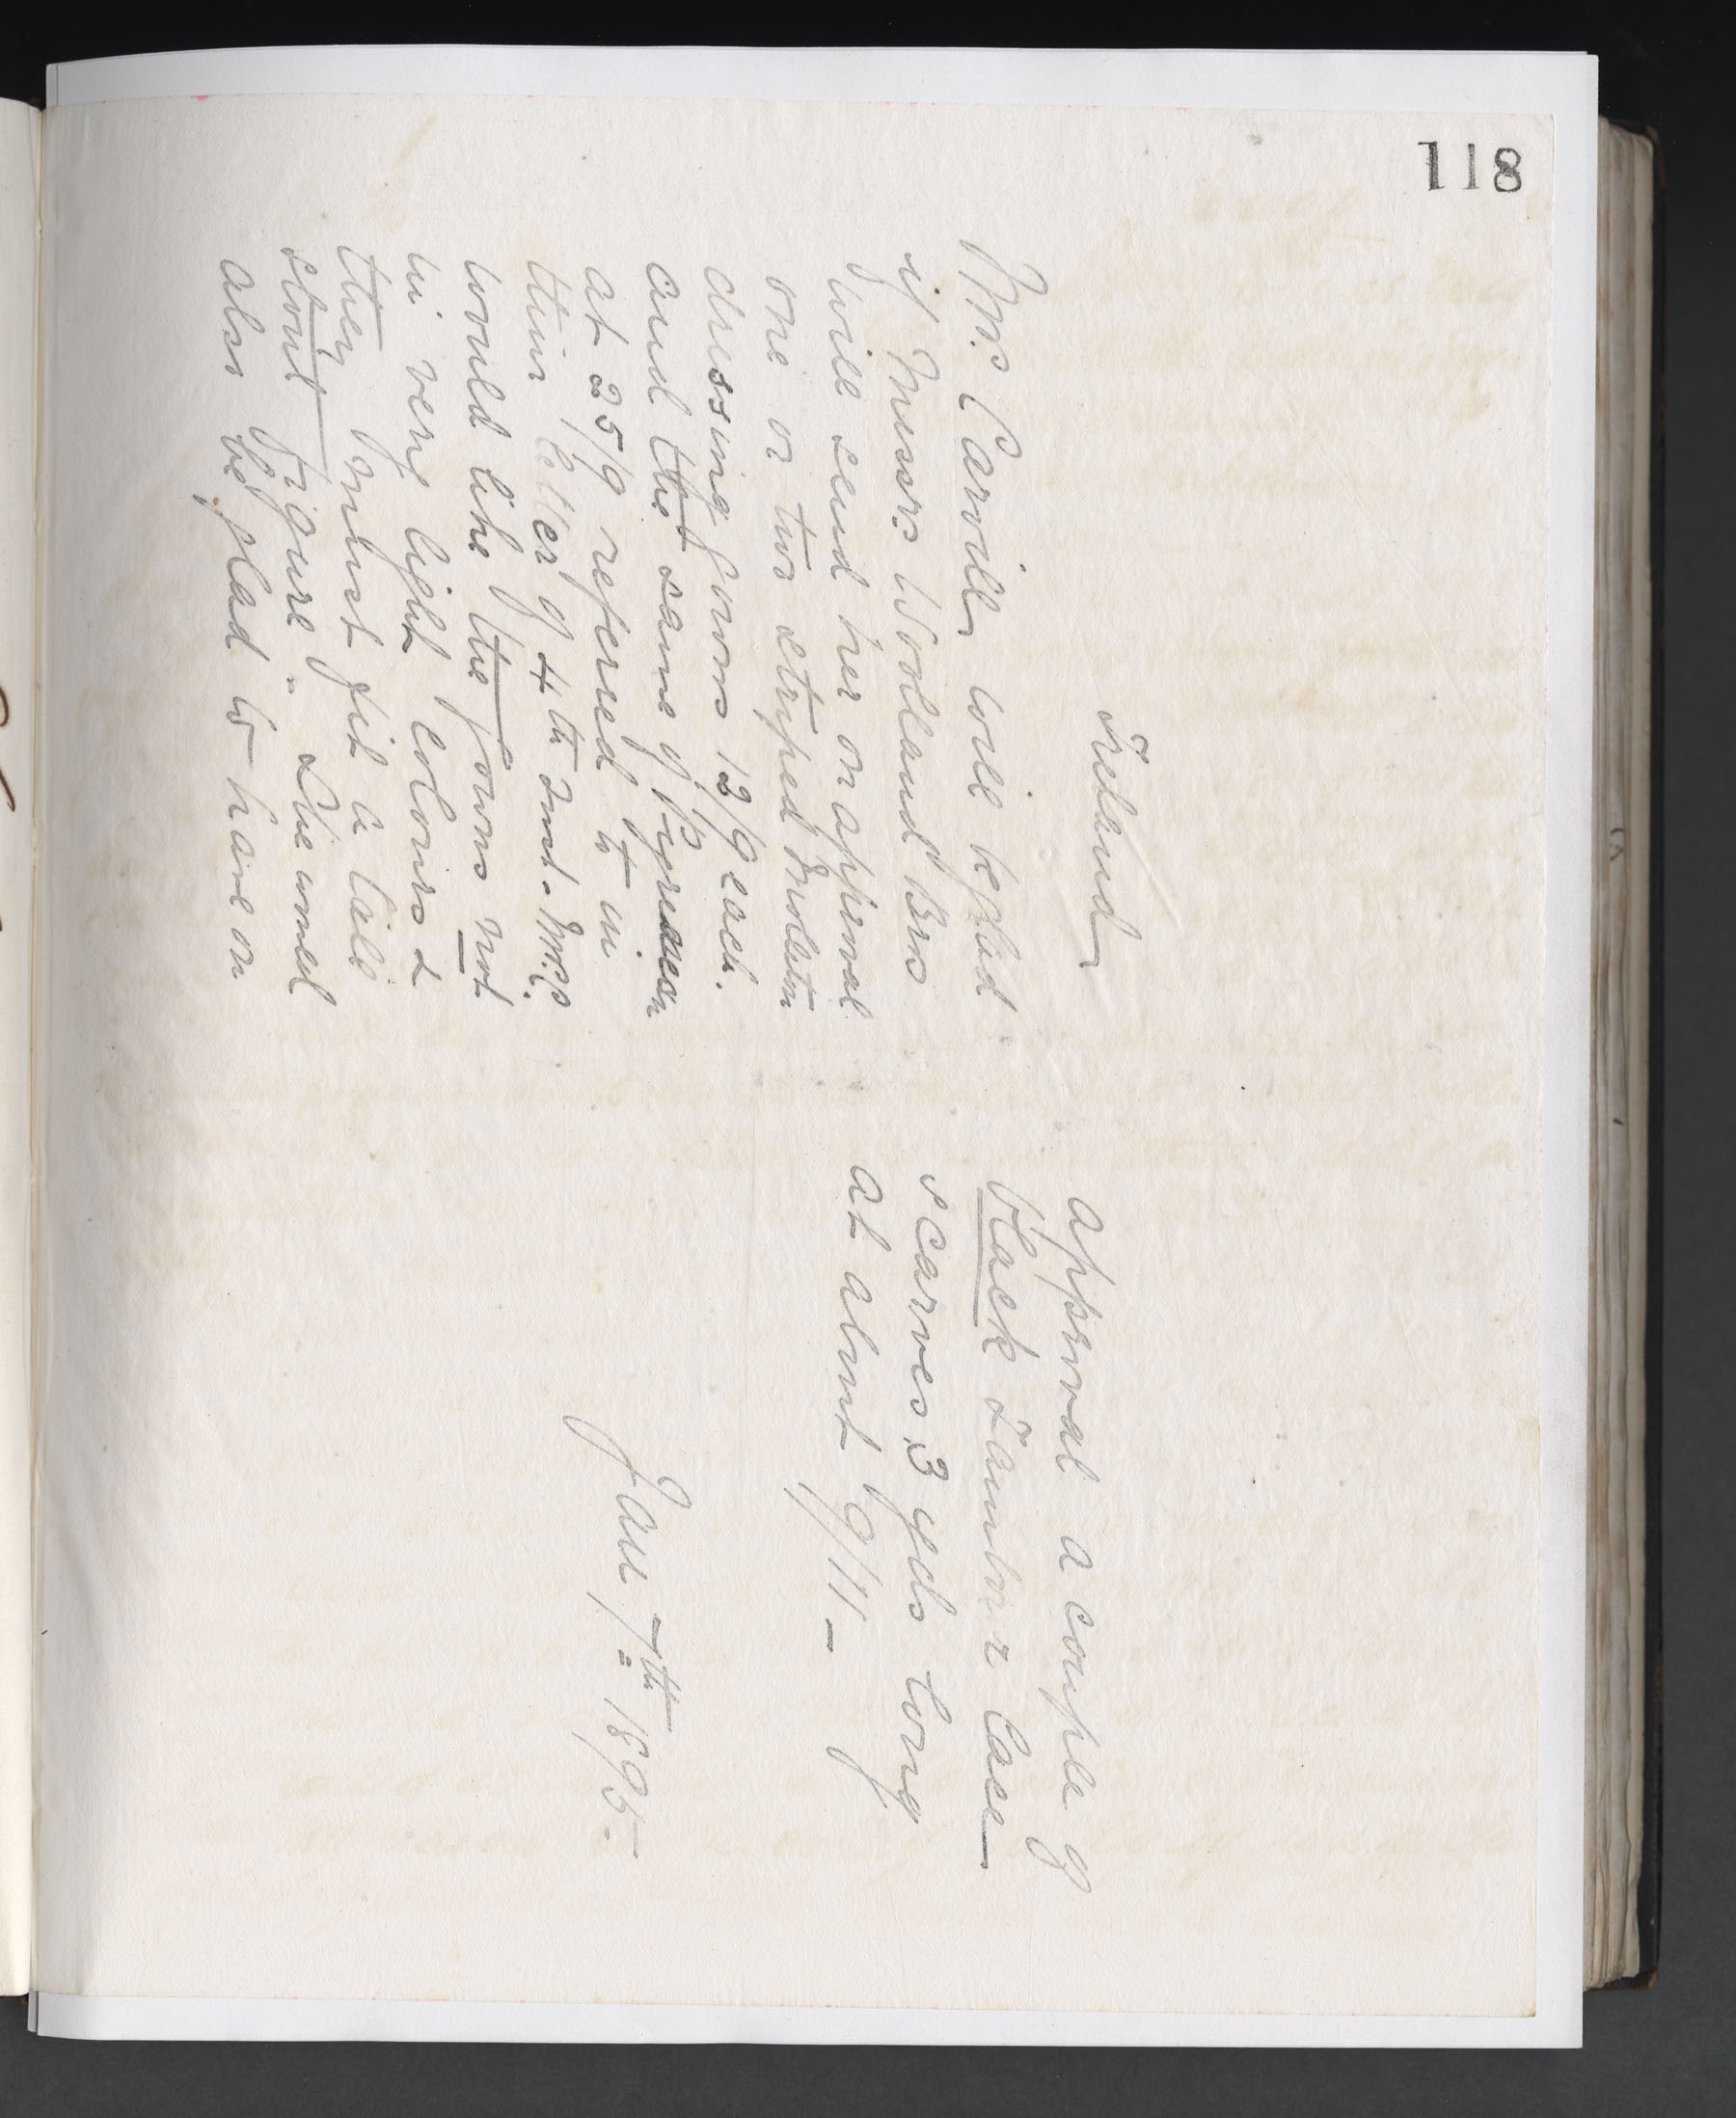 118
Ireland
Mrs. Carvill will be glad
if Messrs Woolland Bros
will send her on approval
one or two striped Molleton
dressing gowns 12/9 each.
and the same of Pyrenean
at 25/9 referred to in
their letter of 4th Inst. Mrs. C.
would like the gowns not
in very light colours &
they must fit a tall
stout figure. She would
also be glad to have on
approval a couple of
black Tambour lace
scarves 3 yds long
at about 9/11 -
Jan 7th 1895-